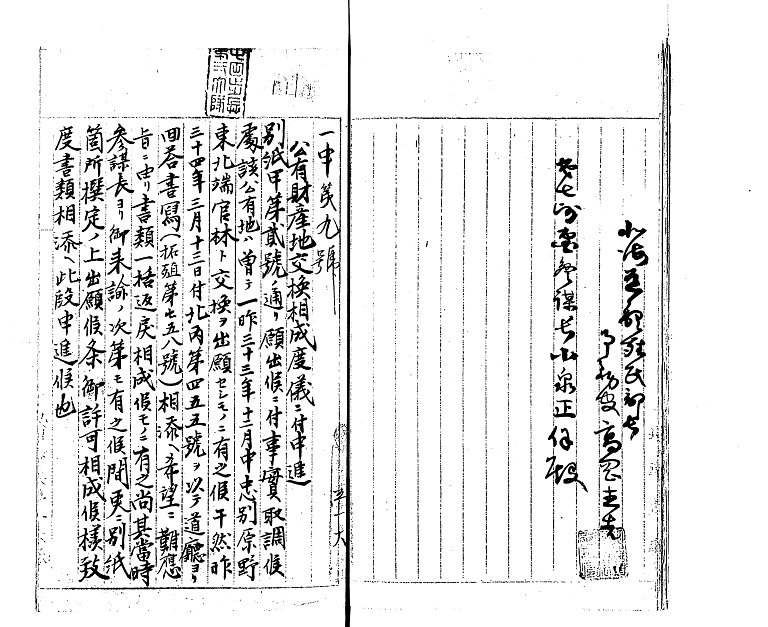 北海道廳殖民部長
高岡直吉
第七師團參謀長小泉正保殿
一申第九號
公有財産地交換相成度儀ニ付申進
別紙甲第貳號ノ通リ願出候ニ付事實取調候
處該公有地ハ曽テ一昨三十三年十二月中忠別原野
東北端官林ト交換ヲ出願セシモノニ有之候于然昨
三十四年三月十三日付北丙第四五五號ヲ以テ道廳ヨリ
回答書寫(拓殖第七五八號)相添ヘ希望ニ難應
旨ニ由リ書類一括返戻相成候モノニ有之尚其當時
參謀長ヨリ御来諭ノ次第モ有之候間更ニ別紙
箇所撰定ノ上出願候条御許可相成候様致
度書類相添ヘ此段申進候也